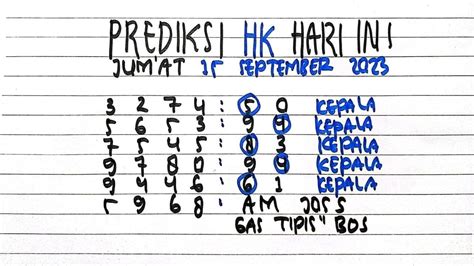 PREDIKSI HK HARI INI
JUM'AT 15 SEPTEMBER 2023
3 2 7 4 : 5 0 KEPALA
5 6 5 3 : 9 9 KEPALA
7 5 4 5 : 8 3 KEPALA
9 7 8 0 : 9 9 KEPALA
9 4 4 6 : 6 1 KEPALA
5 9 6 8 : AM JOSS
GAS TIPIS" BOS